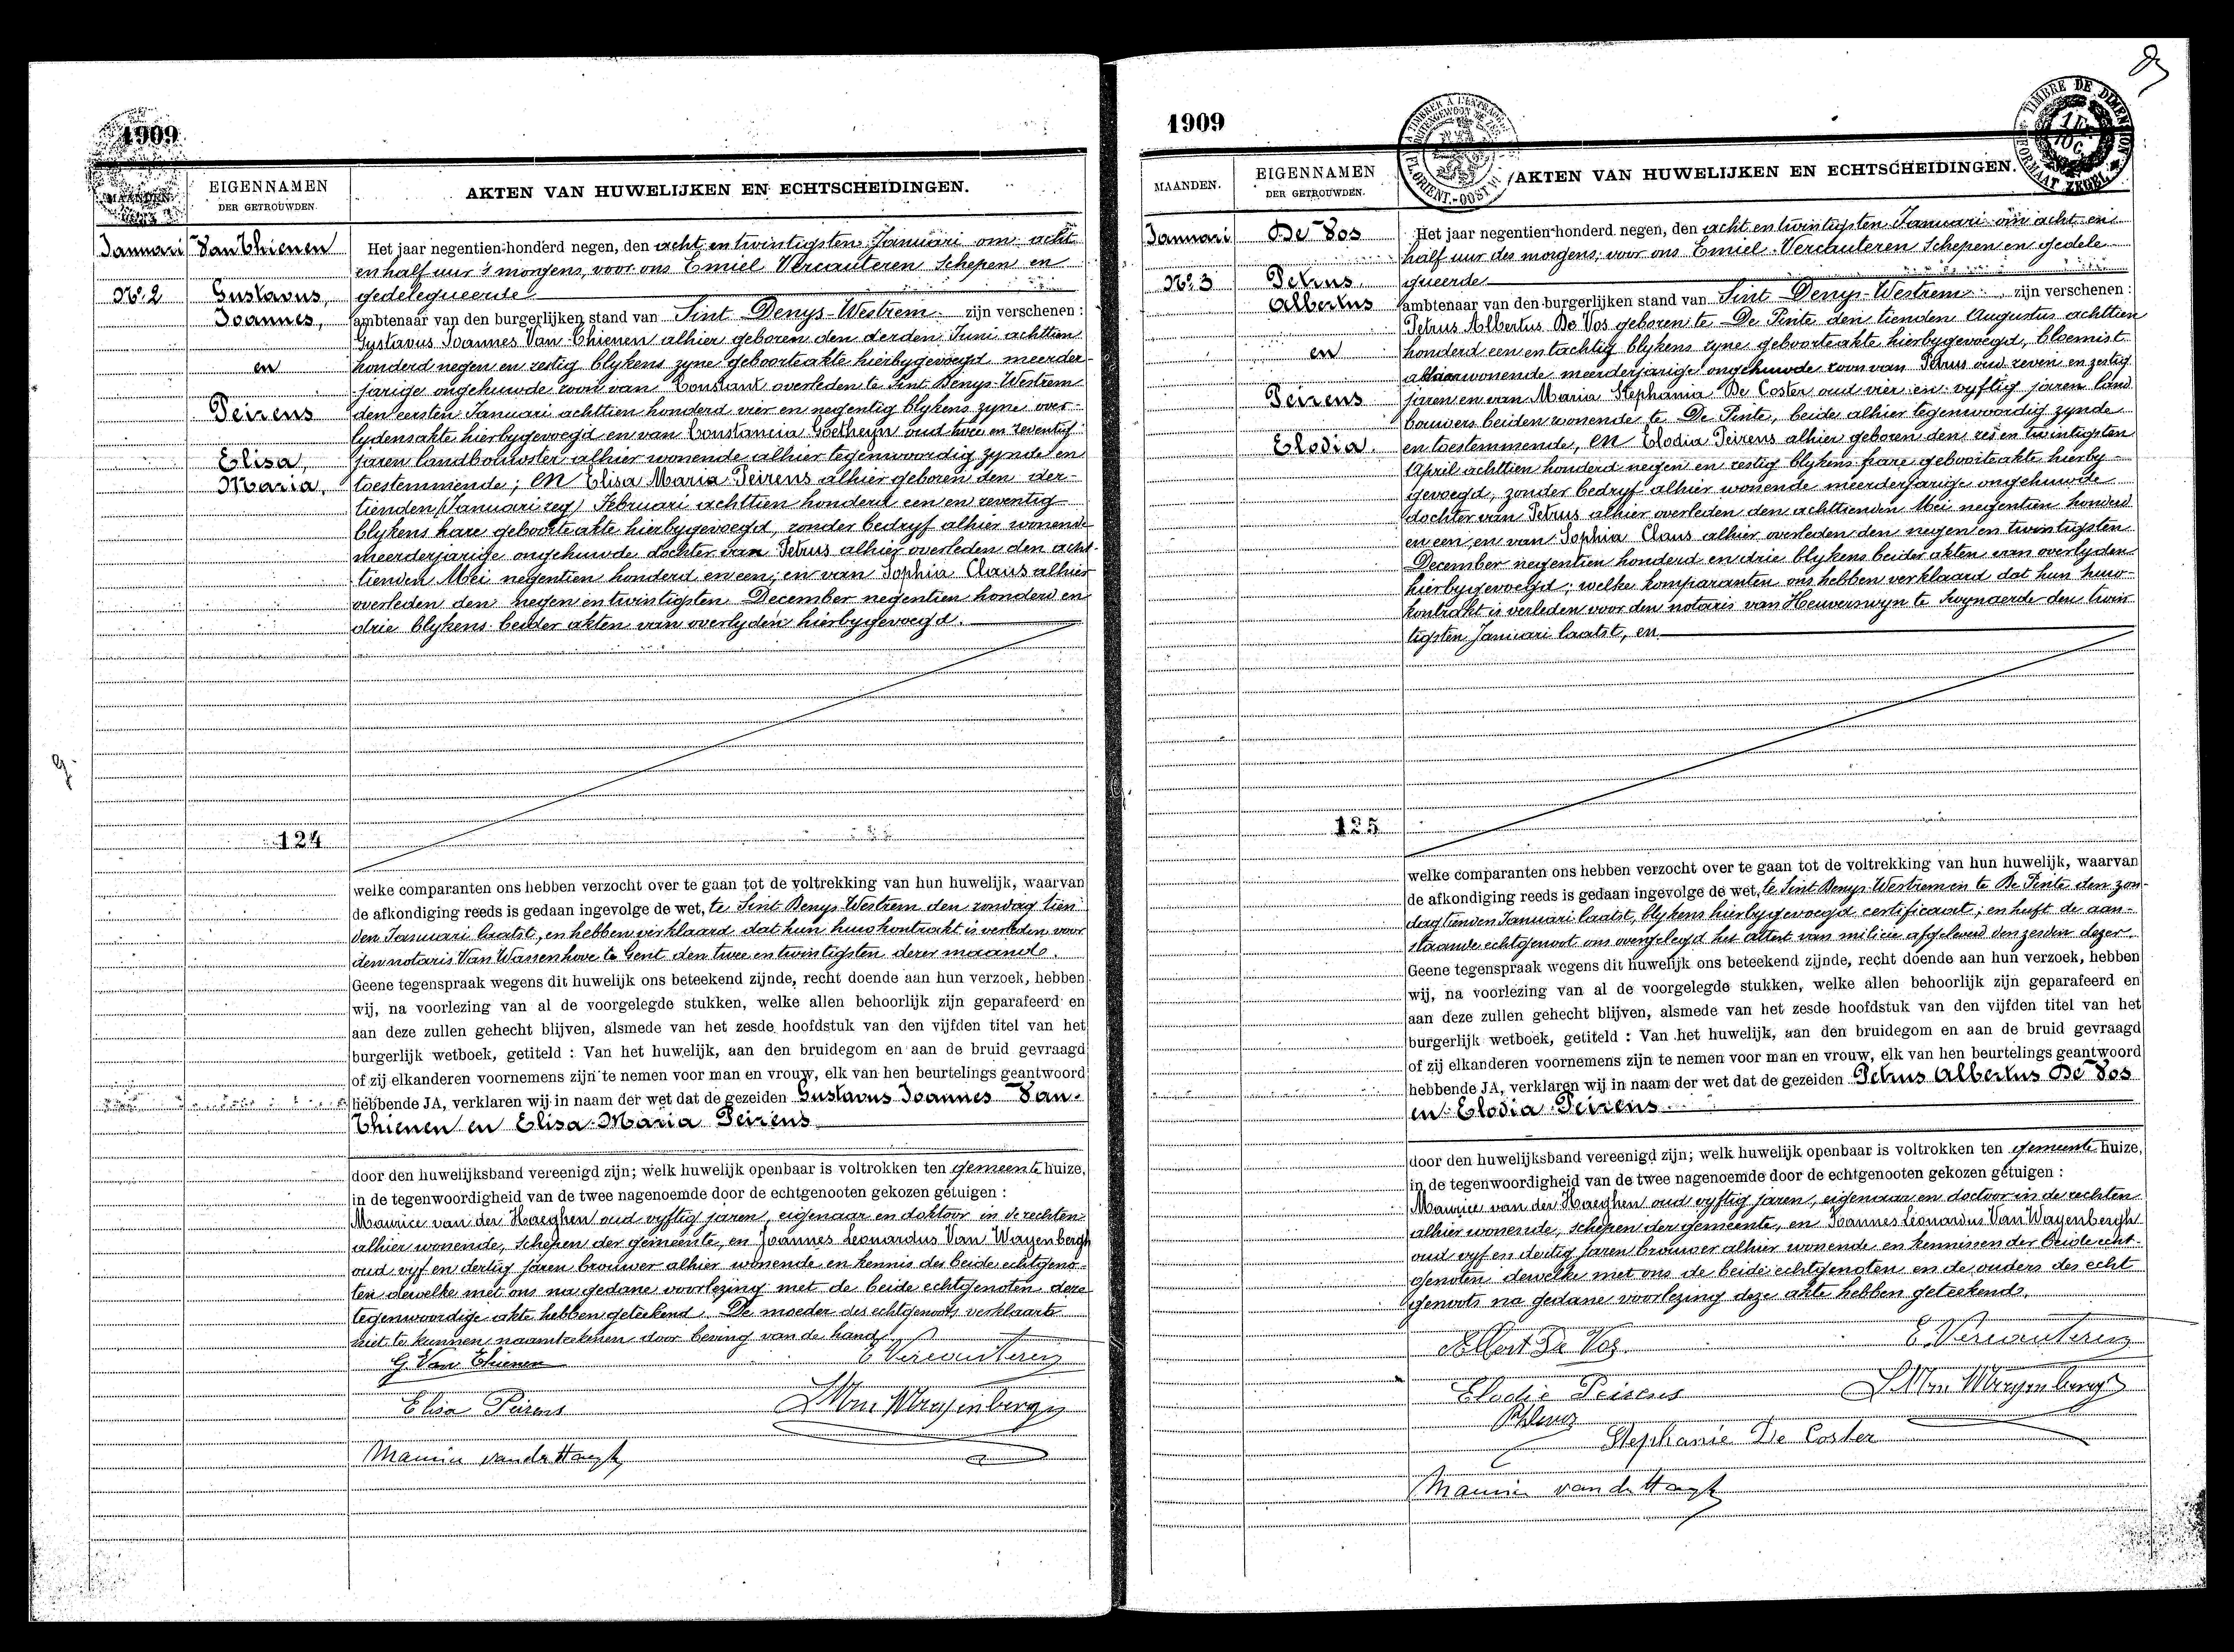 1909
MAANDEN.
EIGENNAMEN
DER GETROUWDEN.
AKTEN VAN HUWELIJKEN EN ECHTSCHEIDINGEN.
Januari
No. 2
Van Thienen
Gustavus,
Joannes,
en
Peirens
Elisa,
Maria.
124
Het jaar negentien-honderd negen, den acht en twintigsten Januari om acht
en half uur 's morgens, voor ons Emiel Vercauteren Schepen en
gedelegueerde
ambtenaar van den burgerlijken stand van Sint Denys-Westrem zijn verschenen :
Gustavus Joannes Van Thienen alhier geboren den derden Juni achttien
honderd negen en zestig blykens zyne geboorteakte hierbygevoegd meerder-
jarige ongehuwde zoon van Constant overleden te Sint Denys-Westrem
den eersten Januari achttien honderd vier en negentig blykens zyne over-
lydensakte hierbygevoegd en van Constancia Goetheyn oud twee en zeventig
jaren landbouwster alhier wonende alhier tegenwoordig zynde en
toestemmende; en Elisa Maria Peirens alhier geboren den der-
tienden (Januari zeg) Februari achttien honderd een en zeventig
blykens hare geboorteakte hierbygevoegd, zonder bedryf alhier wonende
meerderjarige ongehuwde dochter van Petrus alhier overleden den acht-
tienden Mei negentien honderd en een; en van Sophia Claus alhier
overleden den negen en twintigsten December negentien honderd en
drie blykens beider akten van overlyden hierbygevoegd.
welke comparanten ons hebben verzocht over te gaan tot de voltrekking van hun huwelijk, waarvan
de afkondiging reeds is gedaan ingevolge de wet, te Sint Denys Westrem den zondag tien
den Januari laatst, en hebben verklaard dat hun huwkontrakt is verleden voor
den notaris Van Wassenhove te Gent den twee en twintigsten dezer maand.
Geene tegenspraak wegens dit huwelijk ons beteekend zijnde, recht doende aan hun verzoek, hebben
wij, na voorlezing van al de voorgelegde stukken, welke allen behoorlijk zijn geparafeerd en
aan deze zullen gehecht blijven, alsmede van het zesde hoofdstuk van den vijfden titel van het
burgerlijk wetboek, getiteld : Van het huwelijk, aan den bruidegom en aan de bruid gevraagd
of zij elkanderen voornemens zijn te nemen voor man en vrouw, elk van hen beurtelings geantwoord
hebbende JA, verklaren wij in naam der wet dat de gezeiden Gustavus Joannes Van
Thienen en Elisa Maria Peirens
door den huwelijksband vereenigd zijn; welk huwelijk openbaar is voltrokken ten gemeente huize,
in de tegenwoordigheid van de twee nagenoemde door de echtgenooten gekozen getuigen :
Maurice van der Haeghen oud vyftig jaren, eigenaar en doktoor in de rechten
alhier wonende, Schepen der gemeente, en Joannes Leonardus Van Wayenbergh
oud vyf en dertig jaren brouwer alhier wonende en kennis des beide echtgeno-
ten dewelke met ons na gedane voorlezing met de beide echtgenoten deze
tegenwoordige akte hebben geteekend. De moeder des echtgenoots verklaarde
niet te kunnen naamteekenen door beving van de hand.
G. Van Thienen
E Vercauteren
Elisa Peirens
L Van Wayenbergh
Maurice van der Haeghen
1909
MAANDEN.
EIGENNAMEN
DER GETROUWDEN.
AKTEN VAN HUWELIJKEN EN ECHTSCHEIDINGEN.
TIMBRE DE DIMENSION
FORMAAT ZEGEL
Januari
No. 3
De Vos
Petrus
Albertus
en
Peirens
Elodia.
125
Het jaar negentien-honderd negen, den acht en twintigsten Januari om acht en
half uur des morgens, voor ons Emiel Vercauteren Schepen en gedele
gueerde
ambtenaar van den burgerlijken stand van Sint Denys-Westrem zijn verschenen :
Petrus Albertus De Vos geboren te De Pinte den tienden Augustus achttien
honderd een en tachtig blykens zyne geboorteakte hierbygevoegd, bloemist
alhier wonende meerderjarige ongehuwde zoon van Petrus oud zeven en zestig
jaren en van Maria Stephania De Coster oud vier en vyftig jaren land
bouwers beiden wonende te De Pinte, beide alhier tegenwoordig zynde
en toestemmende, en Elodia Peirens alhier geboren den zes en twintigsten
April achttien honderd negen en zestig blykens hare geboorteakte hierby-
gevoegd, zonder bedryf alhier wonende meerderjarige ongehuwde
dochter van Petrus alhier overleden den achttienden Mei negentien honderd
en een, en van Sophia Claus alhier overleden den negen en twintigsten
December negentien honderd en drie blykens beider akten van overlyden
hierbygevoegd; welke komparanten ons hebben verklaard dat hun huw-
kontrakt is verleden voor den notaris van Heuverswyn te Swynaerde den twin
tigsten Januari laatst, en
welke comparanten ons hebben verzocht over te gaan tot de voltrekking van hun huwelijk, waarvan
de afkondiging reeds is gedaan ingevolge de wet, te Sint Denys-Westrem en te De Pinte den zon-
dag tienden Januari laatst, blykens hierbygevoegd certificaat; en heeft de aan-
staande echtgenoot ons overgelegd het attest van milicie afgeleverd den zesden dezer.
Geene tegenspraak wegens dit huwelijk ons beteekend zijnde, recht doende aan hun verzoek, hebben
wij, na voorlezing van al de voorgelegde stukken, welke allen behoorlijk zijn geparafeerd en
aan deze zullen gehecht blijven, alsmede van het zesde hoofdstuk van den vijfden titel van het
burgerlijk wetboek, getiteld : Van het huwelijk, aan den bruidegom en aan de bruid gevraagd
of zij elkanderen voornemens zijn te nemen voor man en vrouw, elk van hen beurtelings geantwoord
hebbende JA, verklaren wij in naam der wet dat de gezeiden Petrus Albertus De Vos
en Elodia Peirens
door den huwelijksband vereenigd zijn; welk huwelijk openbaar is voltrokken ten gemeente huize,
in de tegenwoordigheid van de twee nagenoemde door de echtgenooten gekozen getuigen :
Maurice van der Haeghen oud vyftig jaren, eigenaar en doctoor in de rechten
alhier wonende, schepen der gemeente, en Joannes Léonardus Van Wayenbergh
oud vyf en dertig jaren brouwer alhier wonende en kennissen der beide echt-
genoten dewelke met ons de beide echtgenoten en de ouders des echt
genoots na gedane voorlezing deze akte hebben geteekend.
Albert De Vos
E. Vercauteren
Elodie Peirens
L Van Wayenbergh
Stephanie De Coster
Maurice van der Haeghen